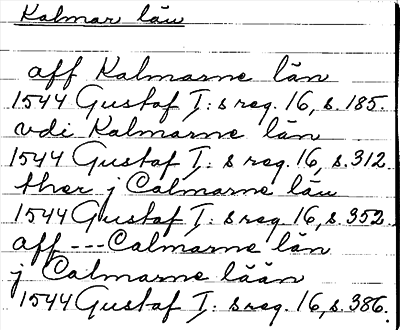 Kalmar län
aff Kalmarne län
1544 Gustaf I: s reg. 16, s. 185.
vdi Kalmarne län
1544 Gustaf I: s reg. 16, s. 312.
ther j Calmarne län
1544 Gustaf I: s reg. 16, s. 352.
aff --- Calmarne län
j Calmarne lään
1544 Gustaf I: s reg. 16, s. 386.